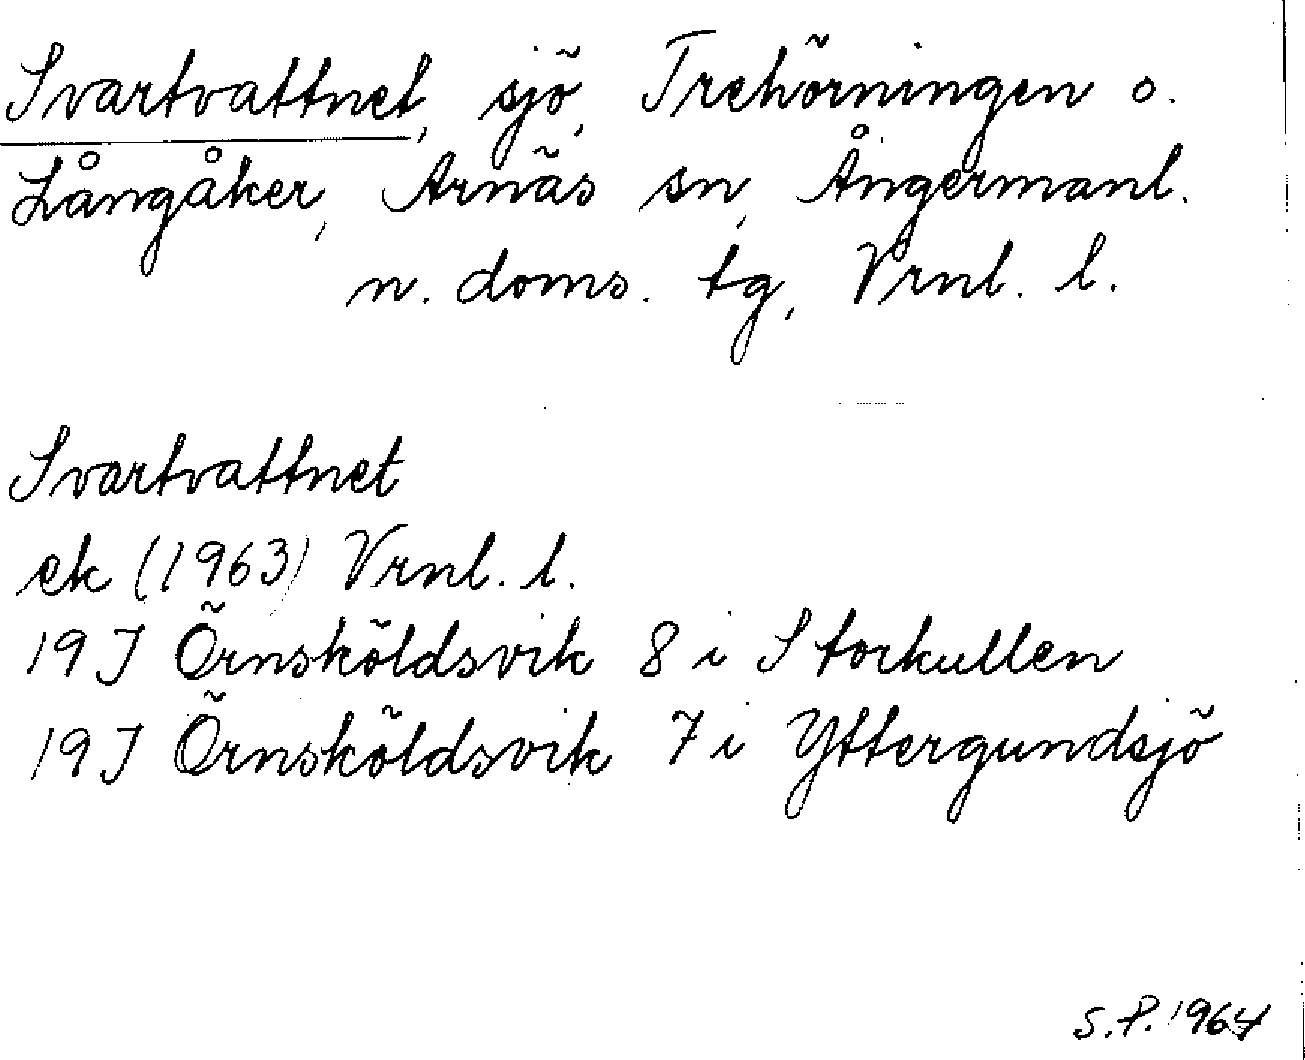 Svartvattnet, sjö, Trehörningen o.
Långåker, Arnäs sn, Ångermanl.
n. doms. tg, Vrnl. l.
Svartvattnet
ek (1963) Vrnl. l.
19J Örnsköldsvik 8 i Storkullen
19J Örnsköldsvik 7 i Yttergundsjö
S.P. 1964